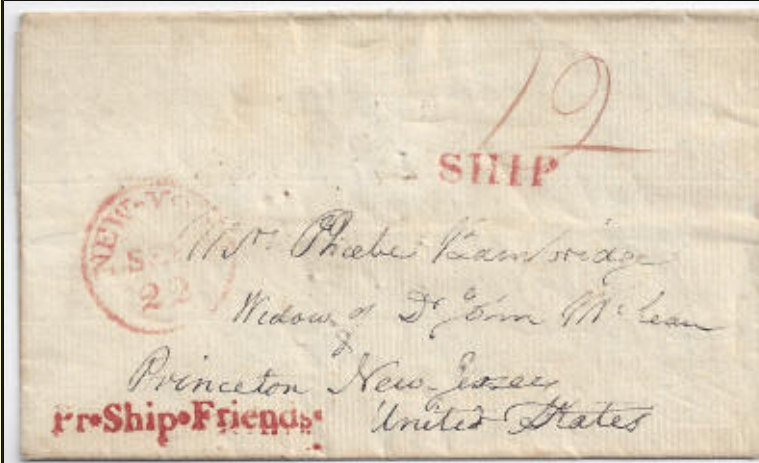 12
SHIP
NEW-YORK
22
Mrs. Phœbe Bainbridge
Widow of Dr John McLean
Princeton New Jersey
United States
Pr•Ship•Friends•